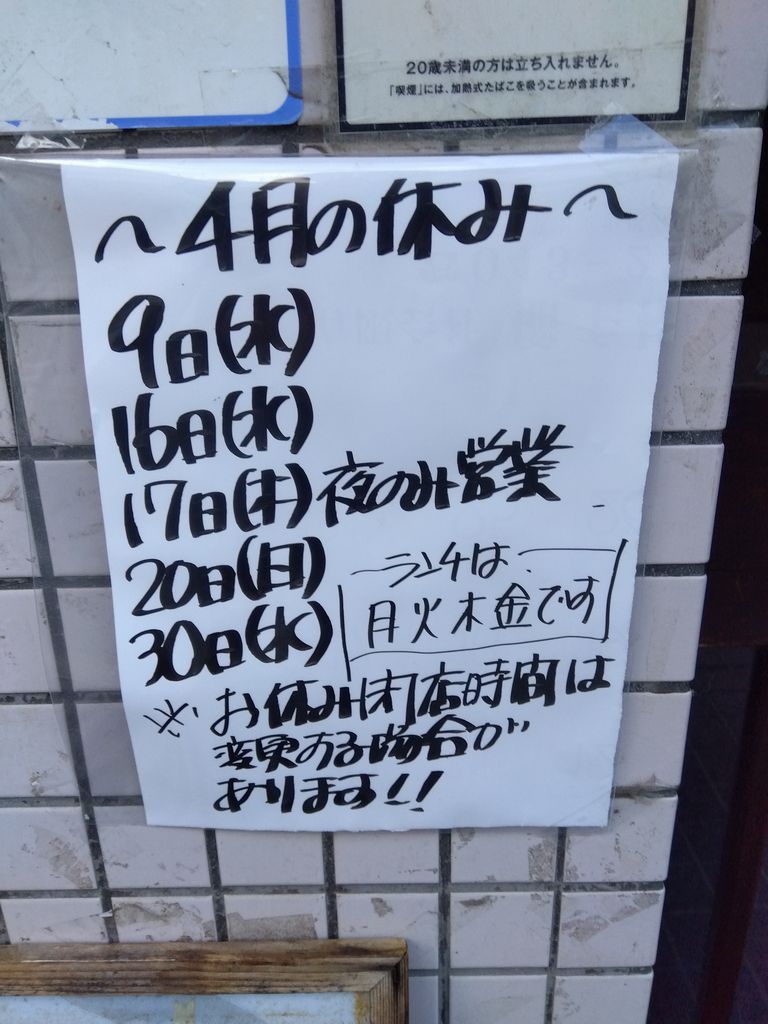 20歳未満の方は立ち入れません。
「喫煙」には、加熱式たばこを吸うことが含まれます。
～4月の休み～
9日(水)
16日(水)
17日(木)夜のみ営業
20日(日)
30日(水)
ランチは
月火木金です
※お休み閉店時間は
変更する場合が
あります!!